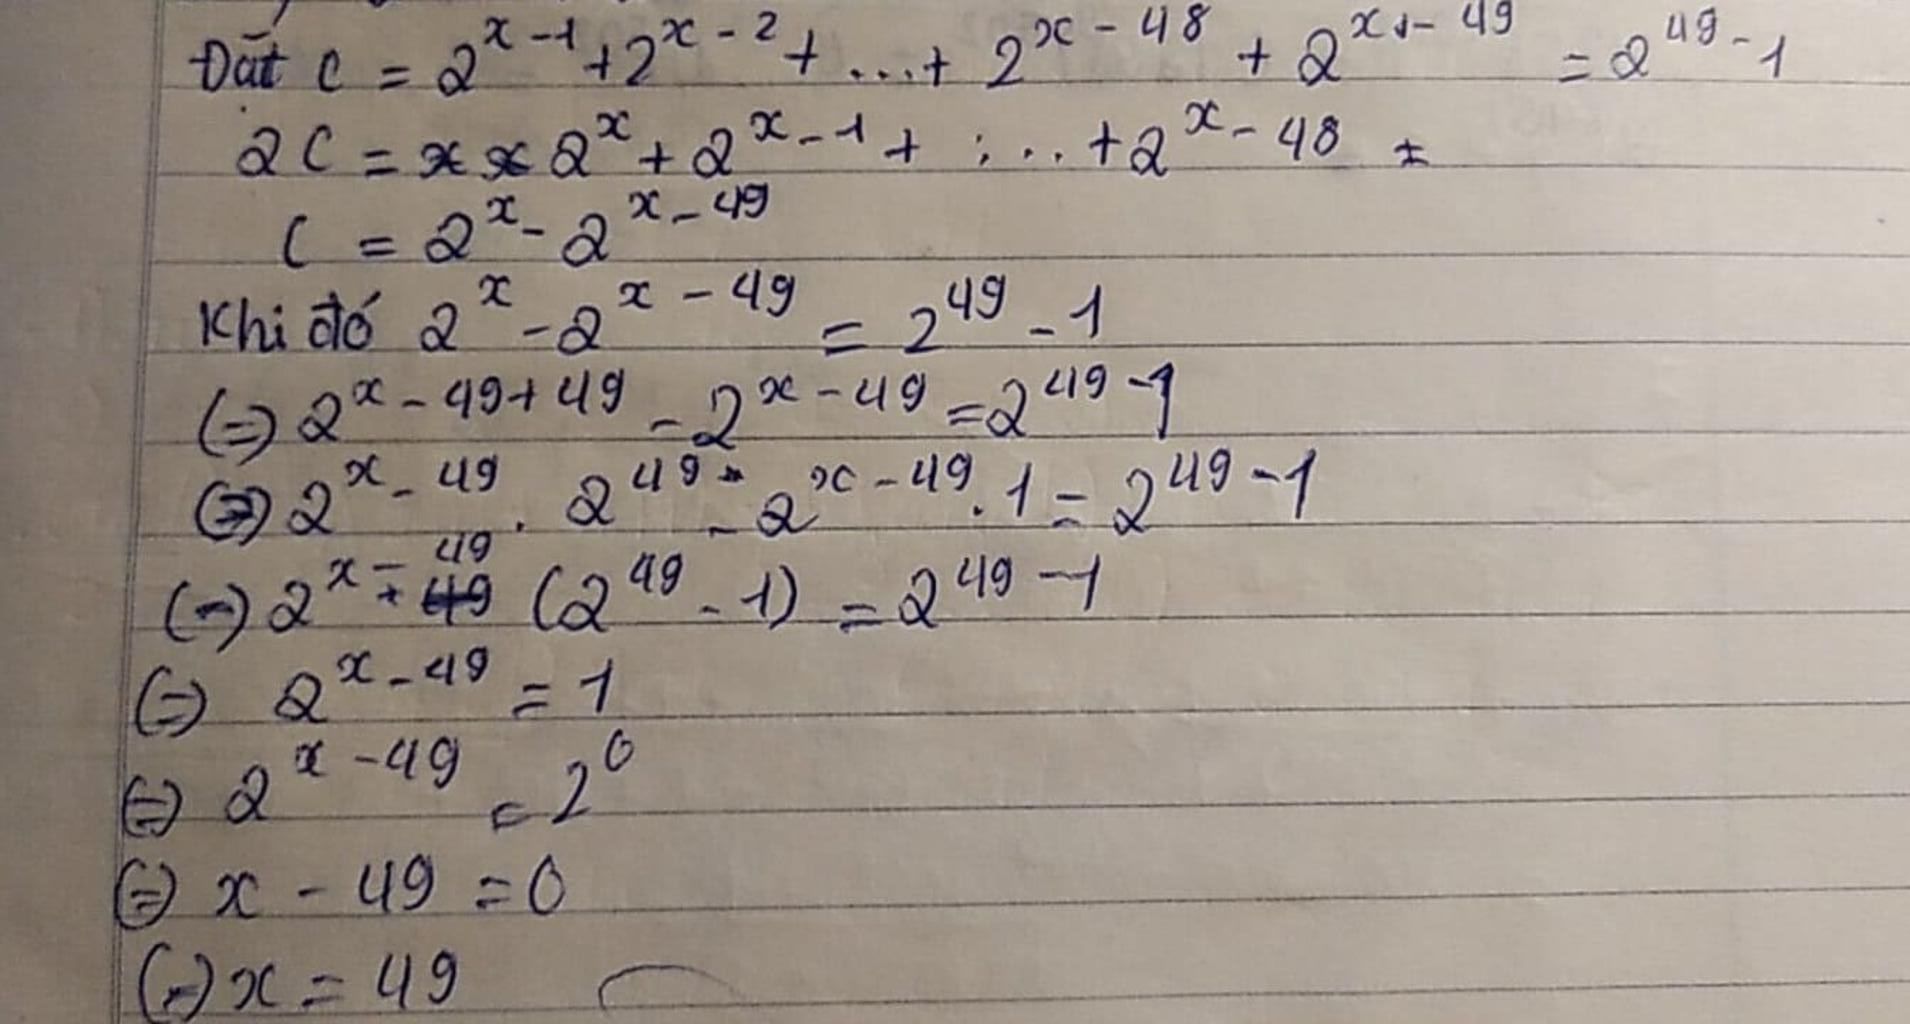 Đặt C = 2^{x-1} + 2^{x-2} + ... + 2^{x-48} + 2^{x-49} = 2^{49} - 1
2C = 2^{x} + 2^{x-1} + ... + 2^{x-48}
C = 2^{x} - 2^{x-49}
Khi đó 2^{x} - 2^{x-49} = 2^{49} - 1
(=) 2^{x-49+49} - 2^{x-49} = 2^{49} - 1
(=) 2^{x-49} . 2^{49} - 2^{x-49} . 1 = 2^{49} - 1
(=) 2^{x-49} (2^{49} - 1) = 2^{49} - 1
(=) 2^{x-49} = 1
(=) 2^{x-49} = 2^{0}
(=) x - 49 = 0
(=) x = 49